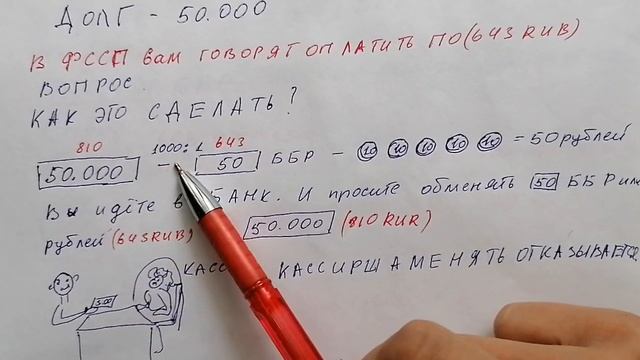 ДОЛГ - 50.000
В ФССП ВАМ ГОВОРЯТ ОПЛАТИТЬ ПО (643 RUB)
ВОПРОС.
КАК ЭТО СДЕЛАТЬ?
810 1000:1 643
50.000 — 50 ББР - 10 10 10 10 10 = 50 рублей
ВЫ ИДЁТЕ В БАНК. И просите обменять 50 ББР
рублей (643 RUB) 50.000 (810 RUR)
КАССИРША МЕНЯТЬ ОТКАЗЫВАЕТСЯ